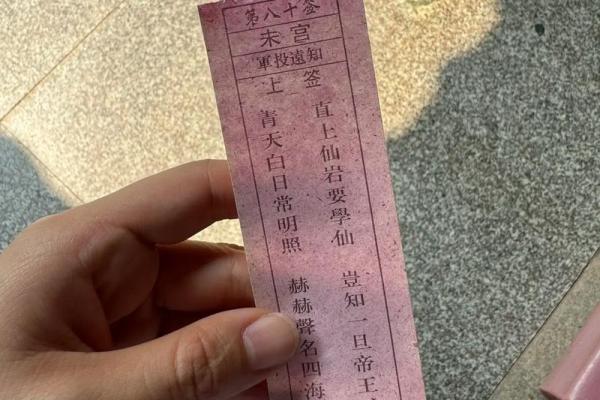 第八十签
未宫
軍投遠知
上签
直上仙岩要學仙
豈知一旦帝王
青天白日常明照
赫赫聲名四海